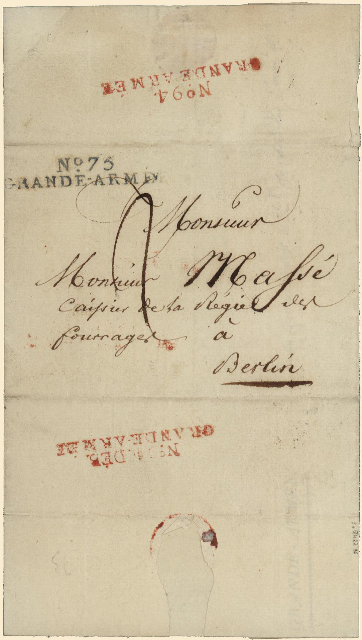 No 94
GRANDE ARMÉE
No. 75
GRANDE-ARMÉE
Monsieur
Monsieur Massé
Caissier de la Régie des
fourrages à
Berlin
No 94 DÉB.
GRANDE-ARMÉE